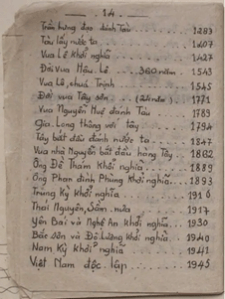 - 14 -
Trần hưng đạo đánh Tàu ... 1283
Tàu lấy nước ta ... 1407
Vua Lê Khởi nghĩa ... 1427
Đời vua Hậu Lê ... 360 năm . 1543
Vua Lê, chúa Trịnh ... 1545
Đời vua Tây sơn ... 1771
Vua Nguyễn Huệ đánh Tàu ... 1789
Gia Long thắng với tây ... 1794
Tây bắt đầu đánh nước ta ... 1847
Vua nhà Nguyễn bắt đầu hàng Tây .. 1862
Ông Đề Thám Khởi nghĩa ... 1889
Ông Phan đình Phùng Khởi nghĩa .. 1893
Trung Kỳ Khởi nghĩa ... 1916
Thái Nguyên, Sầm nưa ... 1917
Yên Bái và Nghệ An Khởi nghĩa ... 1930
Bắc sơn và Đô lương Khởi nghĩa ... 1940
Nam Kỳ Khởi nghĩa ... 1941
Việt Nam độc lập ... 1945